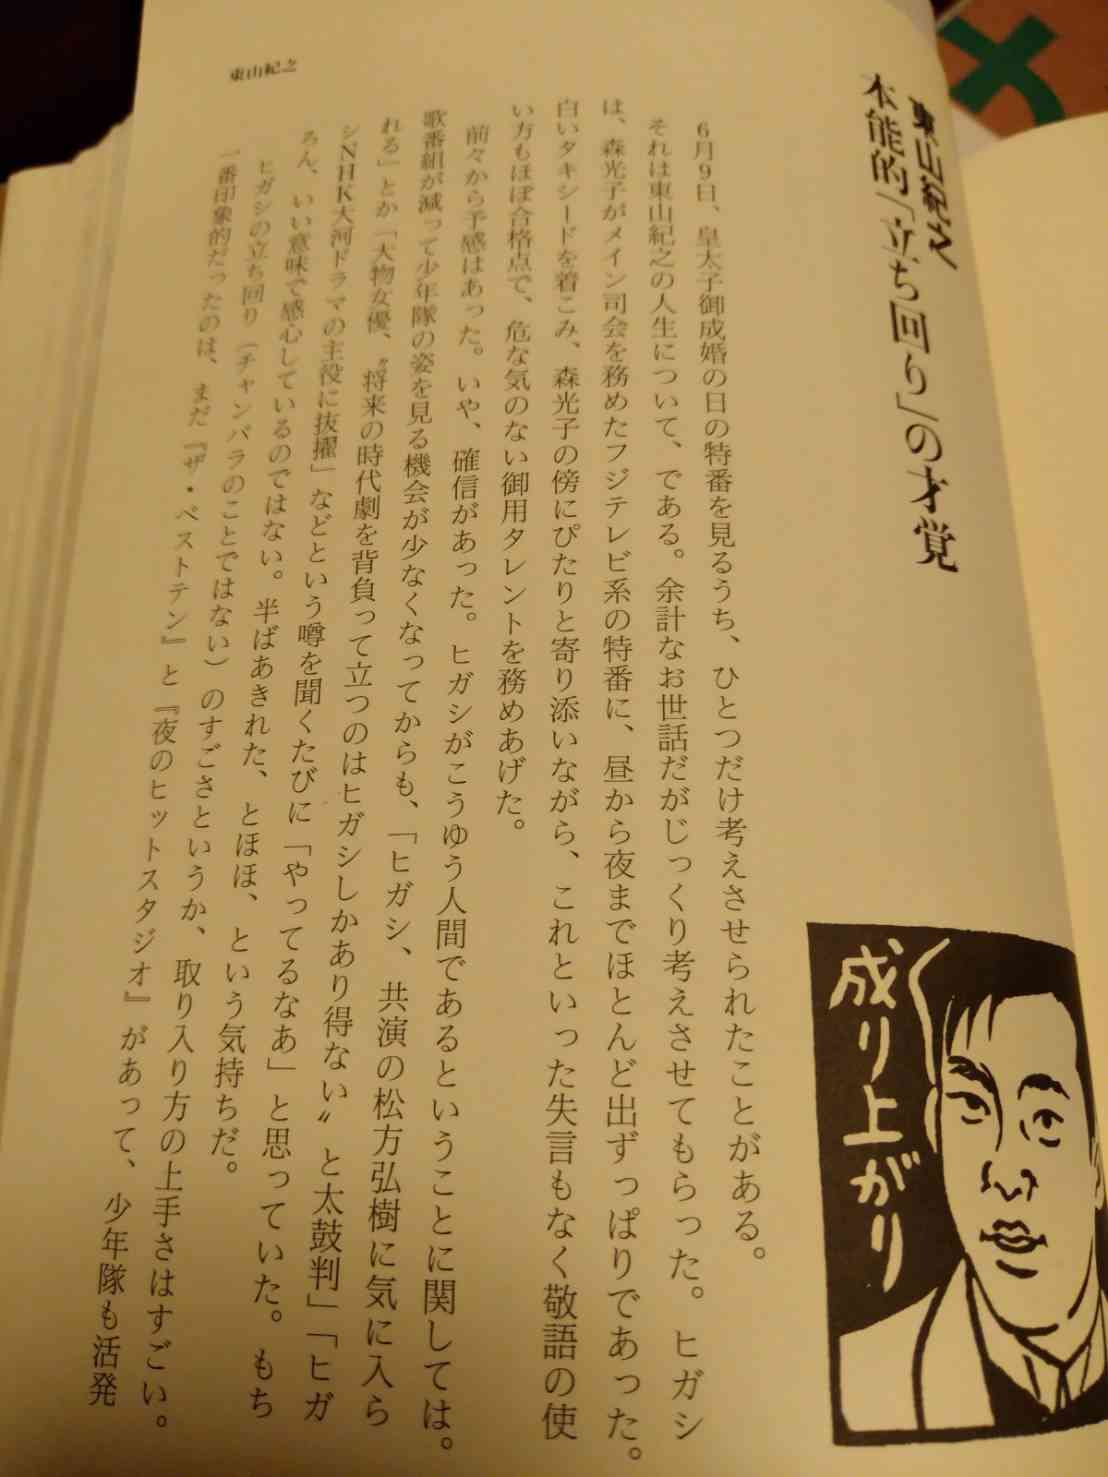 東山紀之
本能的「立ち回り」の才覚
成り上がり
6月9日、皇太子御成婚の日の特番を見るうち、ひとつだけ考えさせられたことがある。
それは東山紀之の人生について、である。余計なお世話だがじっくり考えさせてもらった。ヒガシ
は、森光子がメイン司会を務めたフジテレビ系の特番に、昼から夜までほとんど出ずっぱりであった。
白いタキシードを着こみ、森光子の傍にぴたりと寄り添いながら、これといった失言もなく敬語の使
い方もほぼ合格点で、危な気のない御用タレントを務めあげた。
前々から予感はあった。いや、確信があった。ヒガシがこうゆう人間であるということに関しては。
歌番組が減って少年隊の姿を見る機会が少なくなってからも、「ヒガシ、共演の松方弘樹に気に入ら
れる」とか「大物女優、〝将来の時代劇を背負って立つのはヒガシしかあり得ない〟と太鼓判」「ヒガ
シNHK大河ドラマの主役に抜擢」などという噂を聞くたびに「やってるなあ」と思っていた。もち
ろん、いい意味で感心しているのではない。半ばあきれた、とほほ、という気持ちだ。
ヒガシの立ち回り（チャンバラのことではない）のすごさというか、取り入り方の上手さはすごい。
一番印象的だったのは、まだ『ザ・ベストテン』と『夜のヒットスタジオ』があって、少年隊も活発
東山紀之